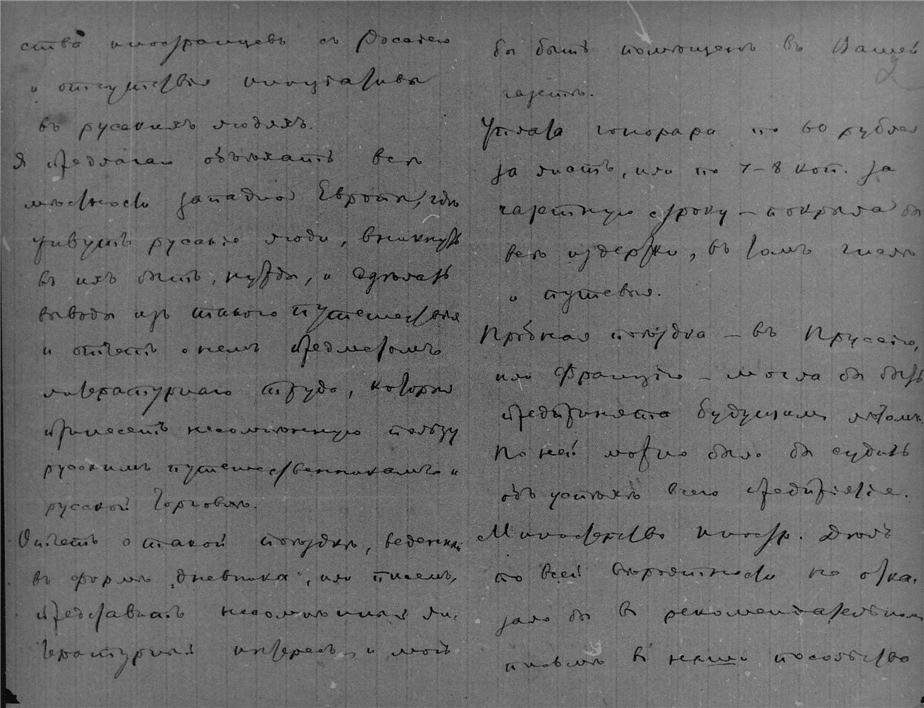 ство иностранцевъ съ Россiею
и отсутствiе иницiативы
въ русскихъ людяхъ.
Я предлагаю объѣхать всѣ
мѣстности западной Европы, гдѣ
живутъ русскiе люди, вникнуть
въ ихъ бытъ, нужды, и сдѣлать
выводы изъ такого путешествiя
и отчетъ о немъ предметомъ
литературнаго труда, который
принесетъ несомнѣнную пользу
русскимъ путешественникамъ и
русской торговлѣ.
Отчетъ о такой поѣздкѣ, веденный
въ формѣ дневника, или писемъ,
представитъ несомнѣнный ли-
тературный интересъ, и могъ
бы быть помѣщенъ въ Вашей
газетѣ.
2
Уплата гонорара по 60 рублей
за листъ, или по 7-8 коп. за
газетную строку – покрыла бы
всѣ издержки, въ томъ числѣ
и путевыя.
Пробная поѣздка – въ Пруссiю,
или Францiю – могла бы быть
предпринята будущимъ лѣтомъ.
По ней можно было бы судить
объ успѣхѣ всего предпрiятiя.
Министерство иностр. Дѣлъ
по всей вѣроятности не отка-
зало бы въ рекомендательномъ
письмѣ въ наши посольства